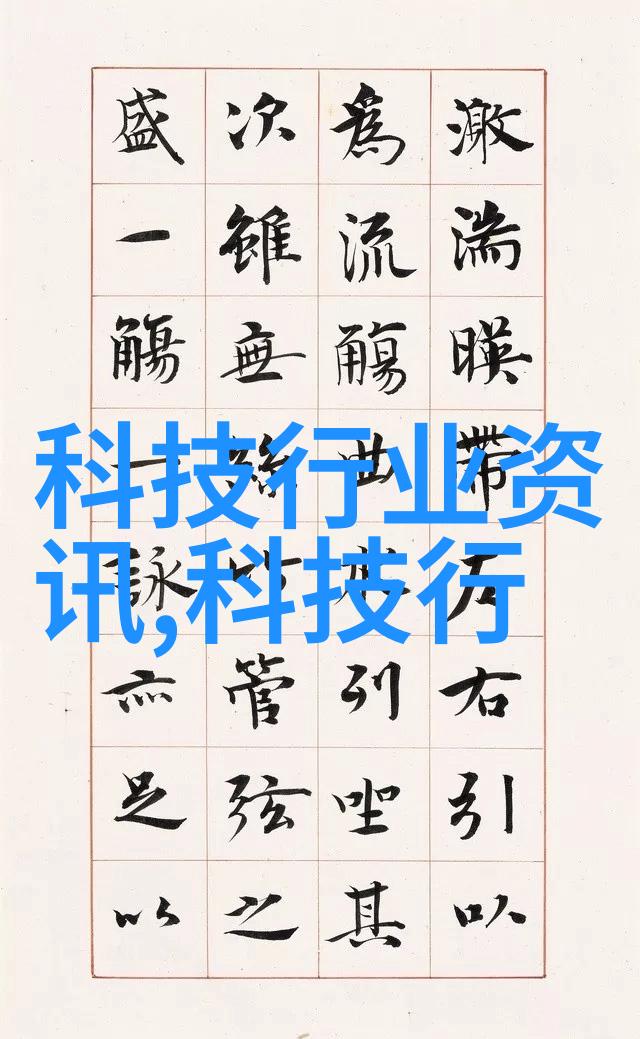 激湍暎帶左右引以
為流觴曲水列坐其
次雖無絲竹管弦之
盛一觴一詠亦足以
科技行业资
讯,科技行